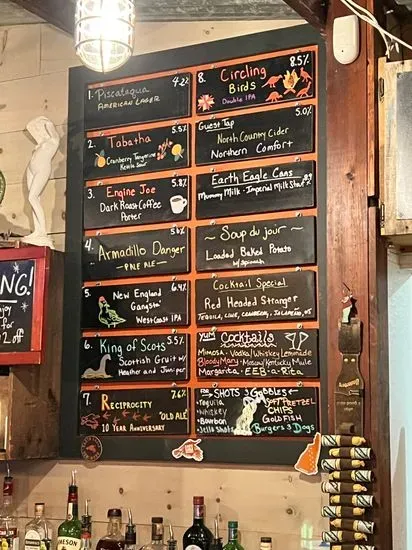 1. Piscataqua 4.2%
AMERICAN LAGER
2. Tabatha 5.5%
Cranberry Tangerine
Kettle Sour
3. Engine Joe 5.8%
Dark Roast Coffee
Porter
4. Armadillo Danger 5.6%
- PALE ALE -
5. New England 6.4%
Gangsta'
West Coast IPA
6. King of Scots 5.5%
Scottish Gruit w/
Heather and Juniper
7. Reciprocity 7.6%
"OLD ALE"
10 YEAR ANNIVERSARY
8. Circling 8.5%
Birds
Double IPA
Guest Tap 5.0%
North Country Cider
Northern Comfort
Earth Eagle Cans
Mummy Milk - Imperial Milk Stout
~ Soup du jour ~
Loaded Baked Potato
w/ Spinach
Cocktail Special
Red Headed Stranger
TEQUILA, LIME, CRANBERRY, JALAPEÑOS
YUM Cocktails
MIMOSA - Vodka/Whiskey Lemonade
Bloody Mary - Moscow/Kentucky Mule
Margarita - E.E.B-a-Rita
FOR SHOTS & Gobbles
• Tequila
• Whiskey
• Bourbon
• Jello Shots
SOFT PRETZEL
CHIPS
GOLDFISH
Burgers & Dogs
NG!
njoy
for
2 off
JAMESON